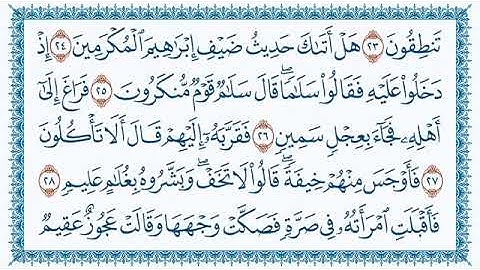 تَنطِقُونَ ٢٣ هَلْ أَتَىٰكَ حَدِيثُ ضَيْفِ إِبْرَٰهِيمَ ٱلْمُكْرَمِينَ ٢٤ إِذْ
دَخَلُوا۟ عَلَيْهِ فَقَالُوا۟ سَلَٰمًا ۖ قَالَ سَلَٰمٌ قَوْمٌ مُّنكَرُونَ ٢٥ فَرَاغَ إِلَىٰٓ
أَهْلِهِۦ فَجَآءَ بِعِجْلٍ سَمِينٍ ٢٦ فَقَرَّبَهُۥٓ إِلَيْهِمْ قَالَ أَلَا تَأْكُلُونَ
٢٧ فَأَوْجَسَ مِنْهُمْ خِيفَةً ۖ قَالُوا۟ لَا تَخَفْ ۖ وَبَشَّرُوهُ بِغُلَٰمٍ عَلِيمٍ ٢٨
فَأَقْبَلَتِ ٱمْرَأَتُهُۥ فِى صَرَّةٍ فَصَكَّتْ وَجْهَهَا وَقَالَتْ عَجُوزٌ عَقِيمٌ